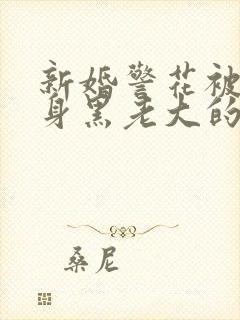 新婚警花被
身黑老大的
桑尼